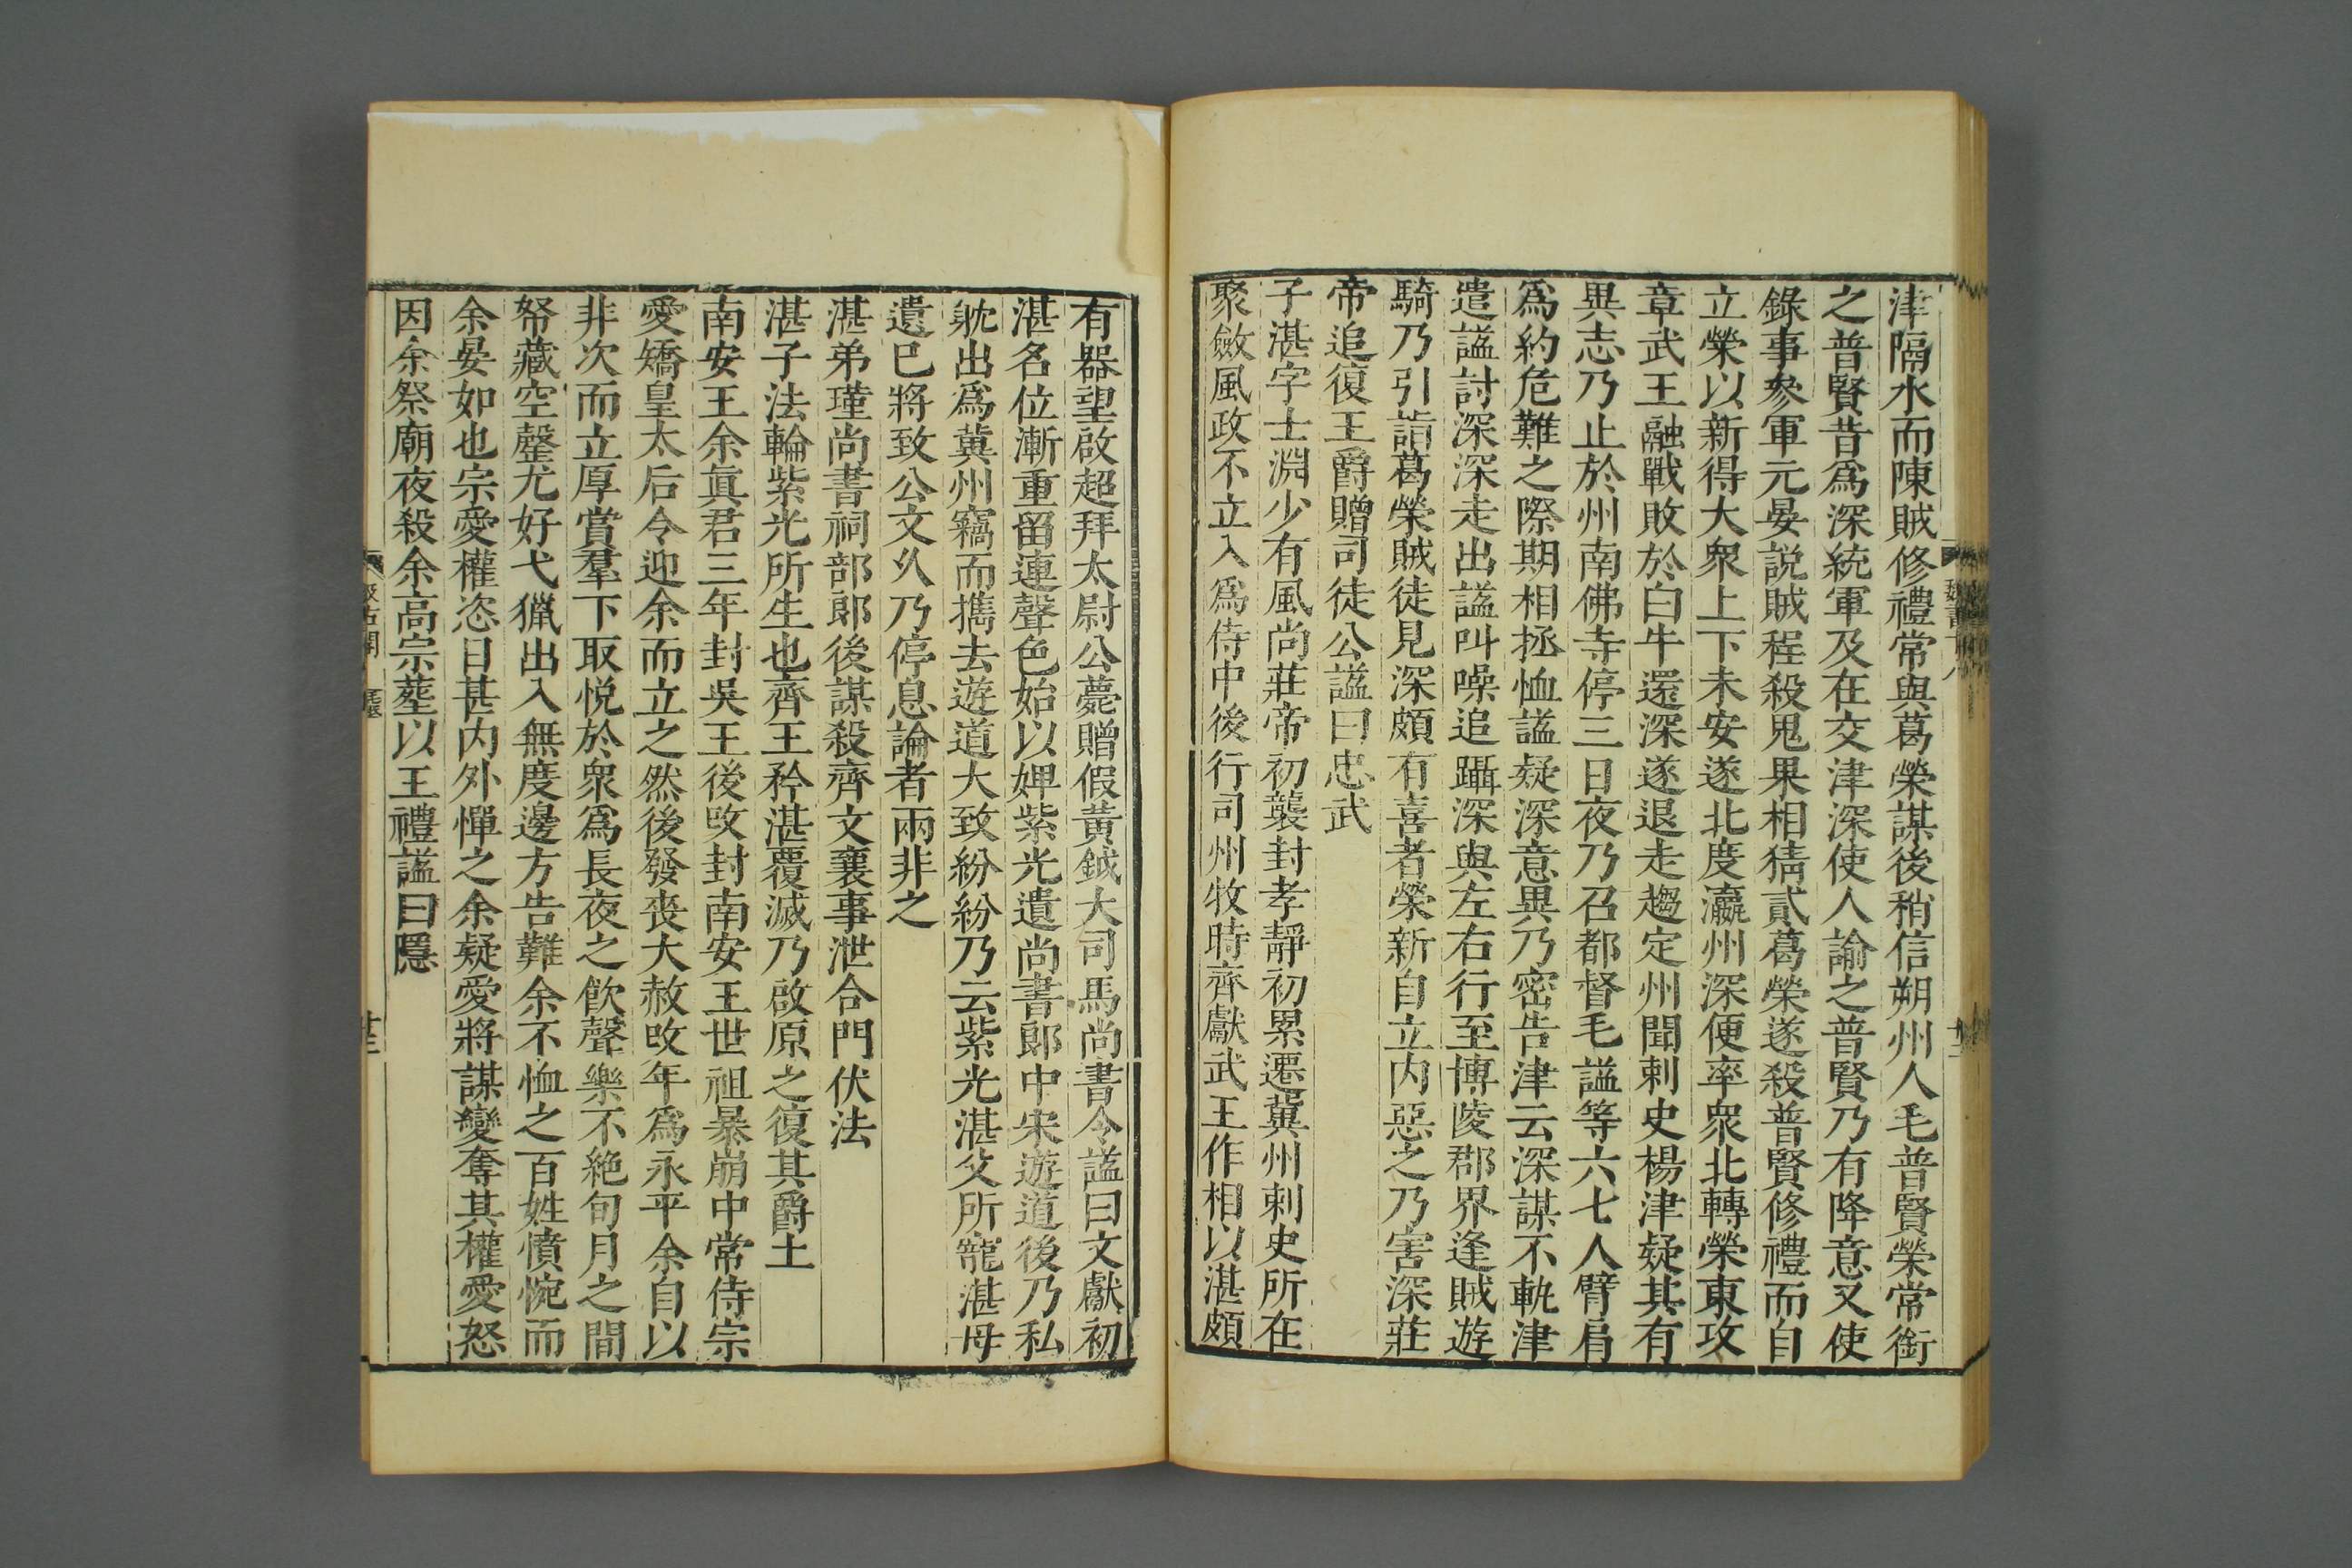 津隔水而陳賊修禮常與葛榮謀後稍信朔州人毛普賢榮常銜
之普賢昔爲深統軍及在交津深使人諭之普賢乃有降意又使
錄事參軍元晏説賊程殺鬼果相猜貳葛榮遂殺普賢修禮而自
立榮以新得大衆上下未安遂北度瀛州深便率衆北轉榮東攻
章武王融戰敗於白牛還深遂退走趨定州聞刺史楊津疑其有
異志乃止於州南佛寺停三日夜乃召都督毛謚等六七人臂肩
爲約危難之際期相拯恤謚疑深意異乃密告津云深謀不軌津
遣謚討深深走出謚叫噪追躡深與左右行至博陵郡界逢賊遊
騎乃引詣葛榮賊徒見深頗有喜者榮新自立内惡之乃害深莊
帝追復王爵贈司徒公謚曰忠武
子湛字士淵少有風尚莊帝初襲封孝靜初累遷冀州刺史所在
聚斂風政不立入爲侍中後行司州牧時齊獻武王作相以湛頗
有器望啟超拜太尉公薨贈假黃鉞大司馬尚書令謚曰文獻初
湛名位漸重留連聲色始以婢紫光遺尚書郎中宋遊道後乃私
躭出爲冀州竊而携去遊道大致紛紛乃云紫光湛父所寵湛母
遺巳將致公文乆乃停息論者兩非之
湛弟瑾尚書祠部郎後謀殺齊文襄事泄合門伏法
湛子法輪紫光所生也齊王矜湛覆滅乃啟原之復其爵土
南安王余眞君三年封吳王後攺封南安王世祖暴崩中常侍宗
愛矯皇太后令迎余而立之然後發喪大赦攺年爲永平余自以
非次而立厚賞羣下取悅於衆爲長夜之飮聲樂不絶旬月之間
帑藏空罄尤好弋獵出入無度邊方告難余不恤之百姓憤惋而
余晏如也宗愛權恣日甚内外憚之余疑愛將謀變奪其權愛怒
因余祭廟夜殺余高宗塟以王禮謚曰隱